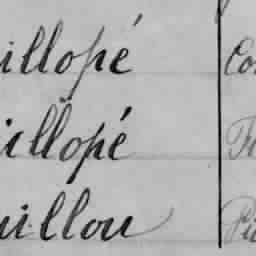 illopé Co
illopé F
uillou Pi